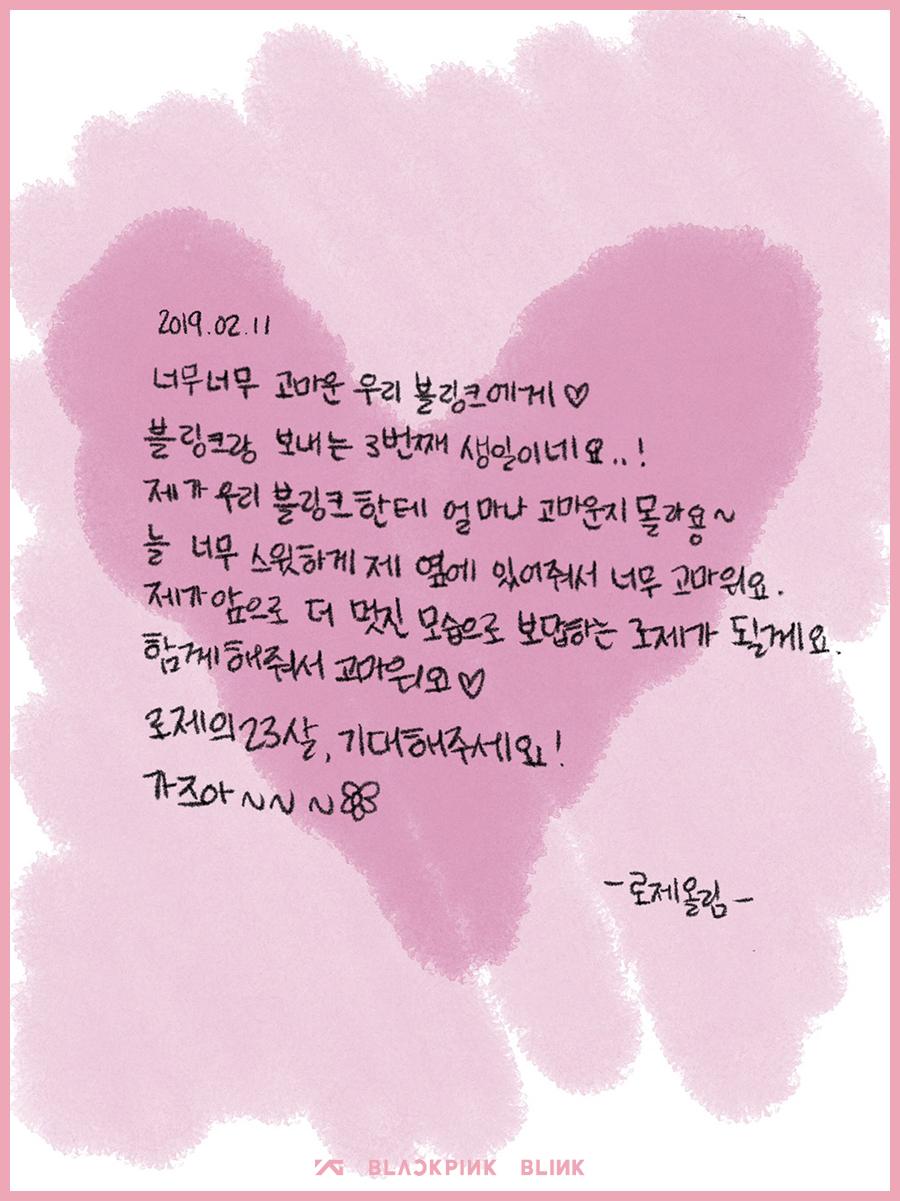 2019.02.11
너무너무 고마운 우리 블링크에게♡
블링크랑 보내는 3번째 생일이네요..!
제가 우리 블링크한테 얼마나 고마운지 몰라용~
늘 너무 스윗하게 제 옆에 있어줘서 너무 고마워요.
제가 앞으로 더 멋진 모습으로 보답하는 로제가 될게요.
함께해줘서 고마워요♡
로제의 23살, 기대해주세요!
가즈아~~~
-로제올림-
YG BLACKPINK BLINK